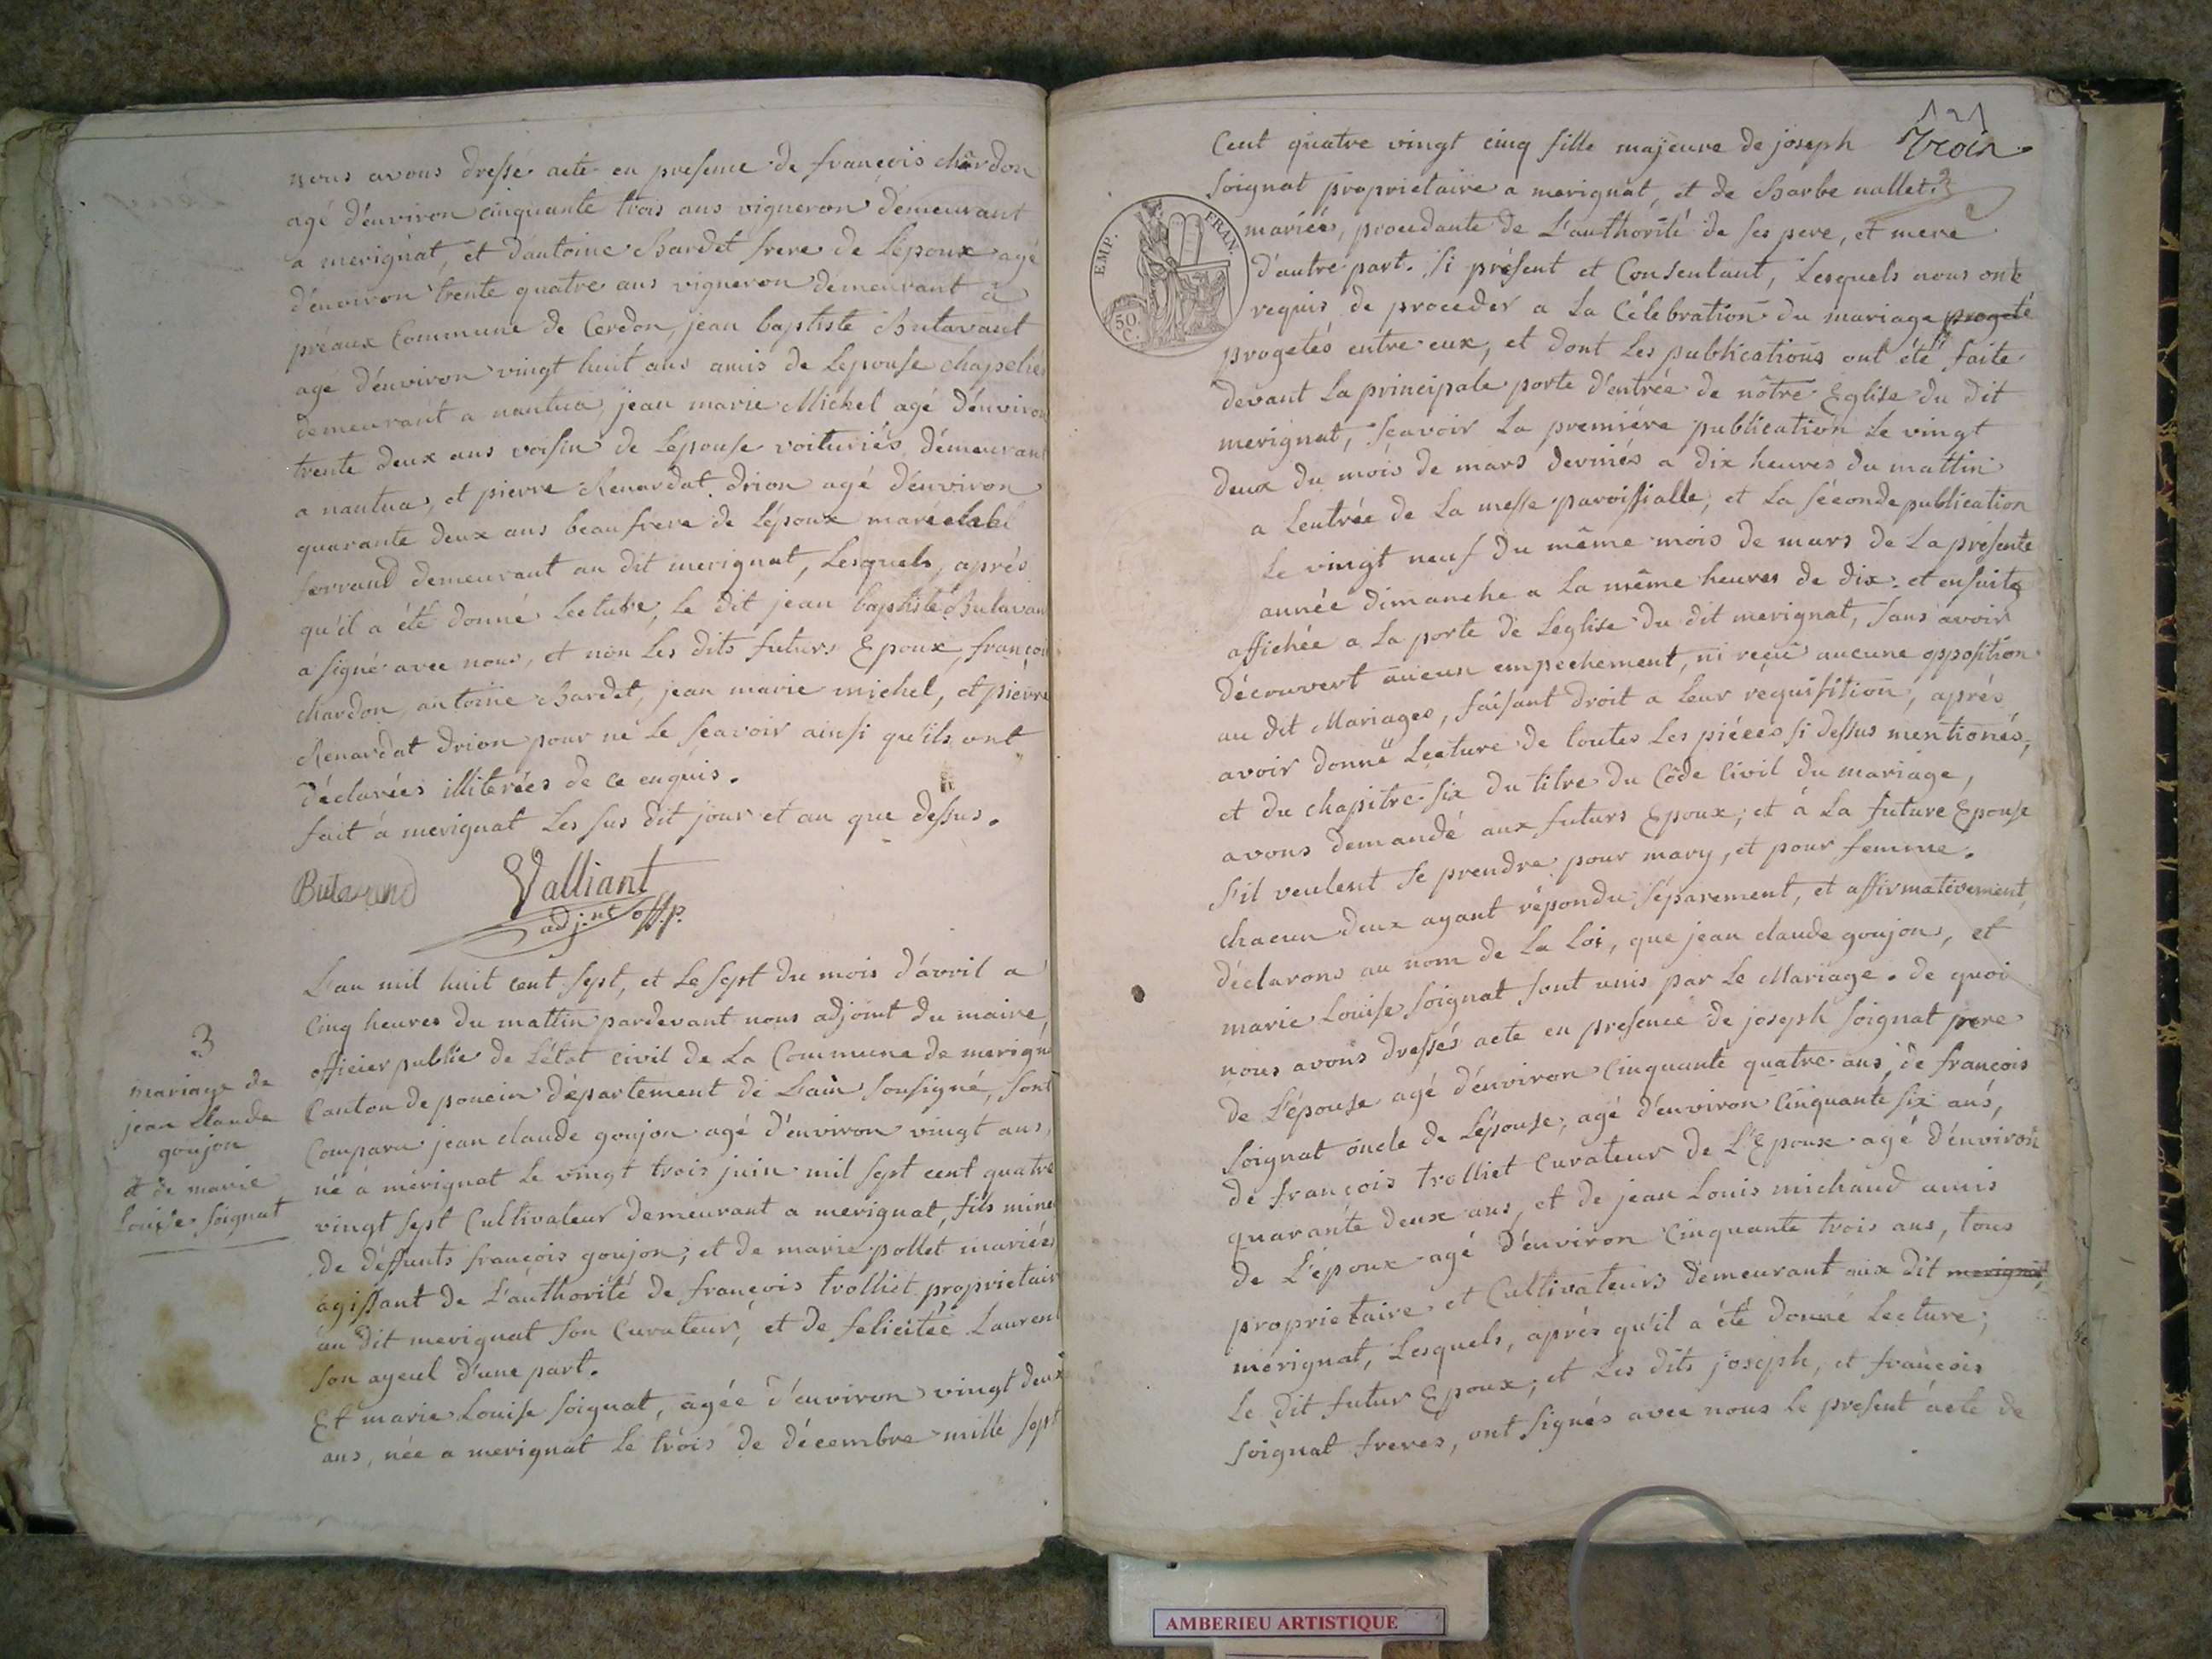 nous avons dressé acte en presence de françois chardon
agé d'environ cinquante trois ans vigneron demeurant
a merignat, et d'antoine Bardet frere de L'époux agé
d'environ trente quatre ans vigneron demeurant a
préaux Commune de Cerdon, jean baptiste Butavant
agé d'environ vingt huit ans amis de Lepouse chapelier
demeurant a nantua, jean marie Michel agé d'environ
trente deux ans voisin de Lépouse voituriés démeurant
a nantua, et pierre Renardat drion agé d'environ
quarante deux ans beau frere de Lépoux marechal
ferrand demeurant au dit merignat, Lesquels, aprés
qu'il a été donné Lecture, Le dit jean baptiste Butavan
a signé avec nous, et non Les dits futurs Epoux, françois
chardon, antoine Bardet, jean marie michel, et pierre
Renardat drion pour ne Le sçavoir ainsi qu'ils ont
déclarées illiterées de ce enquis.
fait à merignat Les sus dit jour et an que dessus.
Butavand Valliant
adj.nt off.p.
L'an mil huit cent sept, et Le sept du mois d'avril a
Cinq heures du mattin pardevant nous adjoint du maire,
officier public de L'état civil de La Commune de merigna
Canton de poncin département de L'ain sousigné, sont
3
mariage de
jean Claude
goujon
et de marie
Louise Soignat
Comparu jean claude goujon agé d'environ vingt ans,
né à mérignat Le vingt trois juin mil sept cent quatre
vingt sept Cultivateur demeurant a merignat, fils mine
de déffunts françois goujon, et de marie pollet mariées
agissant de L'authorité de françois trolliet proprietair
au dit merignat son Curateur, et de felicitée Laurent
son ayeul d'une part.
Et marie Louise soignat, agée d'environ vingt deux
ans, née a merignat Le trois de décembre mille sept
121
Trois
Cent quatre vingt cinq fille majeure de joseph
soignat proprietaire a merignat, et de Barbe nallet
EMP. FRAN.
50 C.
mariés, procedante de L'authorité de ses pere, et mere
d'autre part. si présent et Consentant, Lesquels nous ont
requis de proceder a La Célebration du mariage progeté
progetés entre eux, et dont Les publications ont été faite
devant La principale porte d'entrée de nôtre Eglise du dit
merignat, sçavoir La première publication Le vingt
deux du mois de mars derniés a dix heures du mattin
a L'entrée de La messe paroissialle, et La séconde publication
Le vingt neuf du même mois de mars de La présente
année dimanche a La même heures de dix et ensuite
affichée a La porte de Leglise du dit merignat, sans avoir
découvert aucun empechement, ni reçu aucune opposition
au dit Mariages, faisant droit a Leur réquisition, aprés
avoir donné Lecture de toutes Les piéces si dessus mentionés,
et du chapitre six du titre du Côde Civil du mariage,
avons demandé aux futurs Epoux, et à La future Epouse
s'il veulent se prendre pour mary, et pour femme.
chacun deux ayant répondu séparement, et affirmativement,
déclarons au nom de La Loi, que jean claude goujon, et
marie Louise soignat sont unis par Le Mariage. de quoi
nous avons dressés acte en presence de joseph soignat pere
de L'épouse agé d'environ Cinquante quatre ans, de françois
soignat oncle de Lépouse, agé d'environ Cinquante six ans,
de françois trolliet Curateur de L'Epoux agé d'environ
quarante deux ans, et de jean Louis michaud amis
de L'époux agé d'environ Cinquante trois ans, tous
proprietaire et Cultivateurs demeurant aux dit merignat,
merignat, Lesquels, aprés qu'il a été donné Lecture,
Le dit futur Epoux, et Les dits joseph, et françois
soignat freres, ont signés avec nous Le present acte de
AMBERIEU ARTISTIQUE